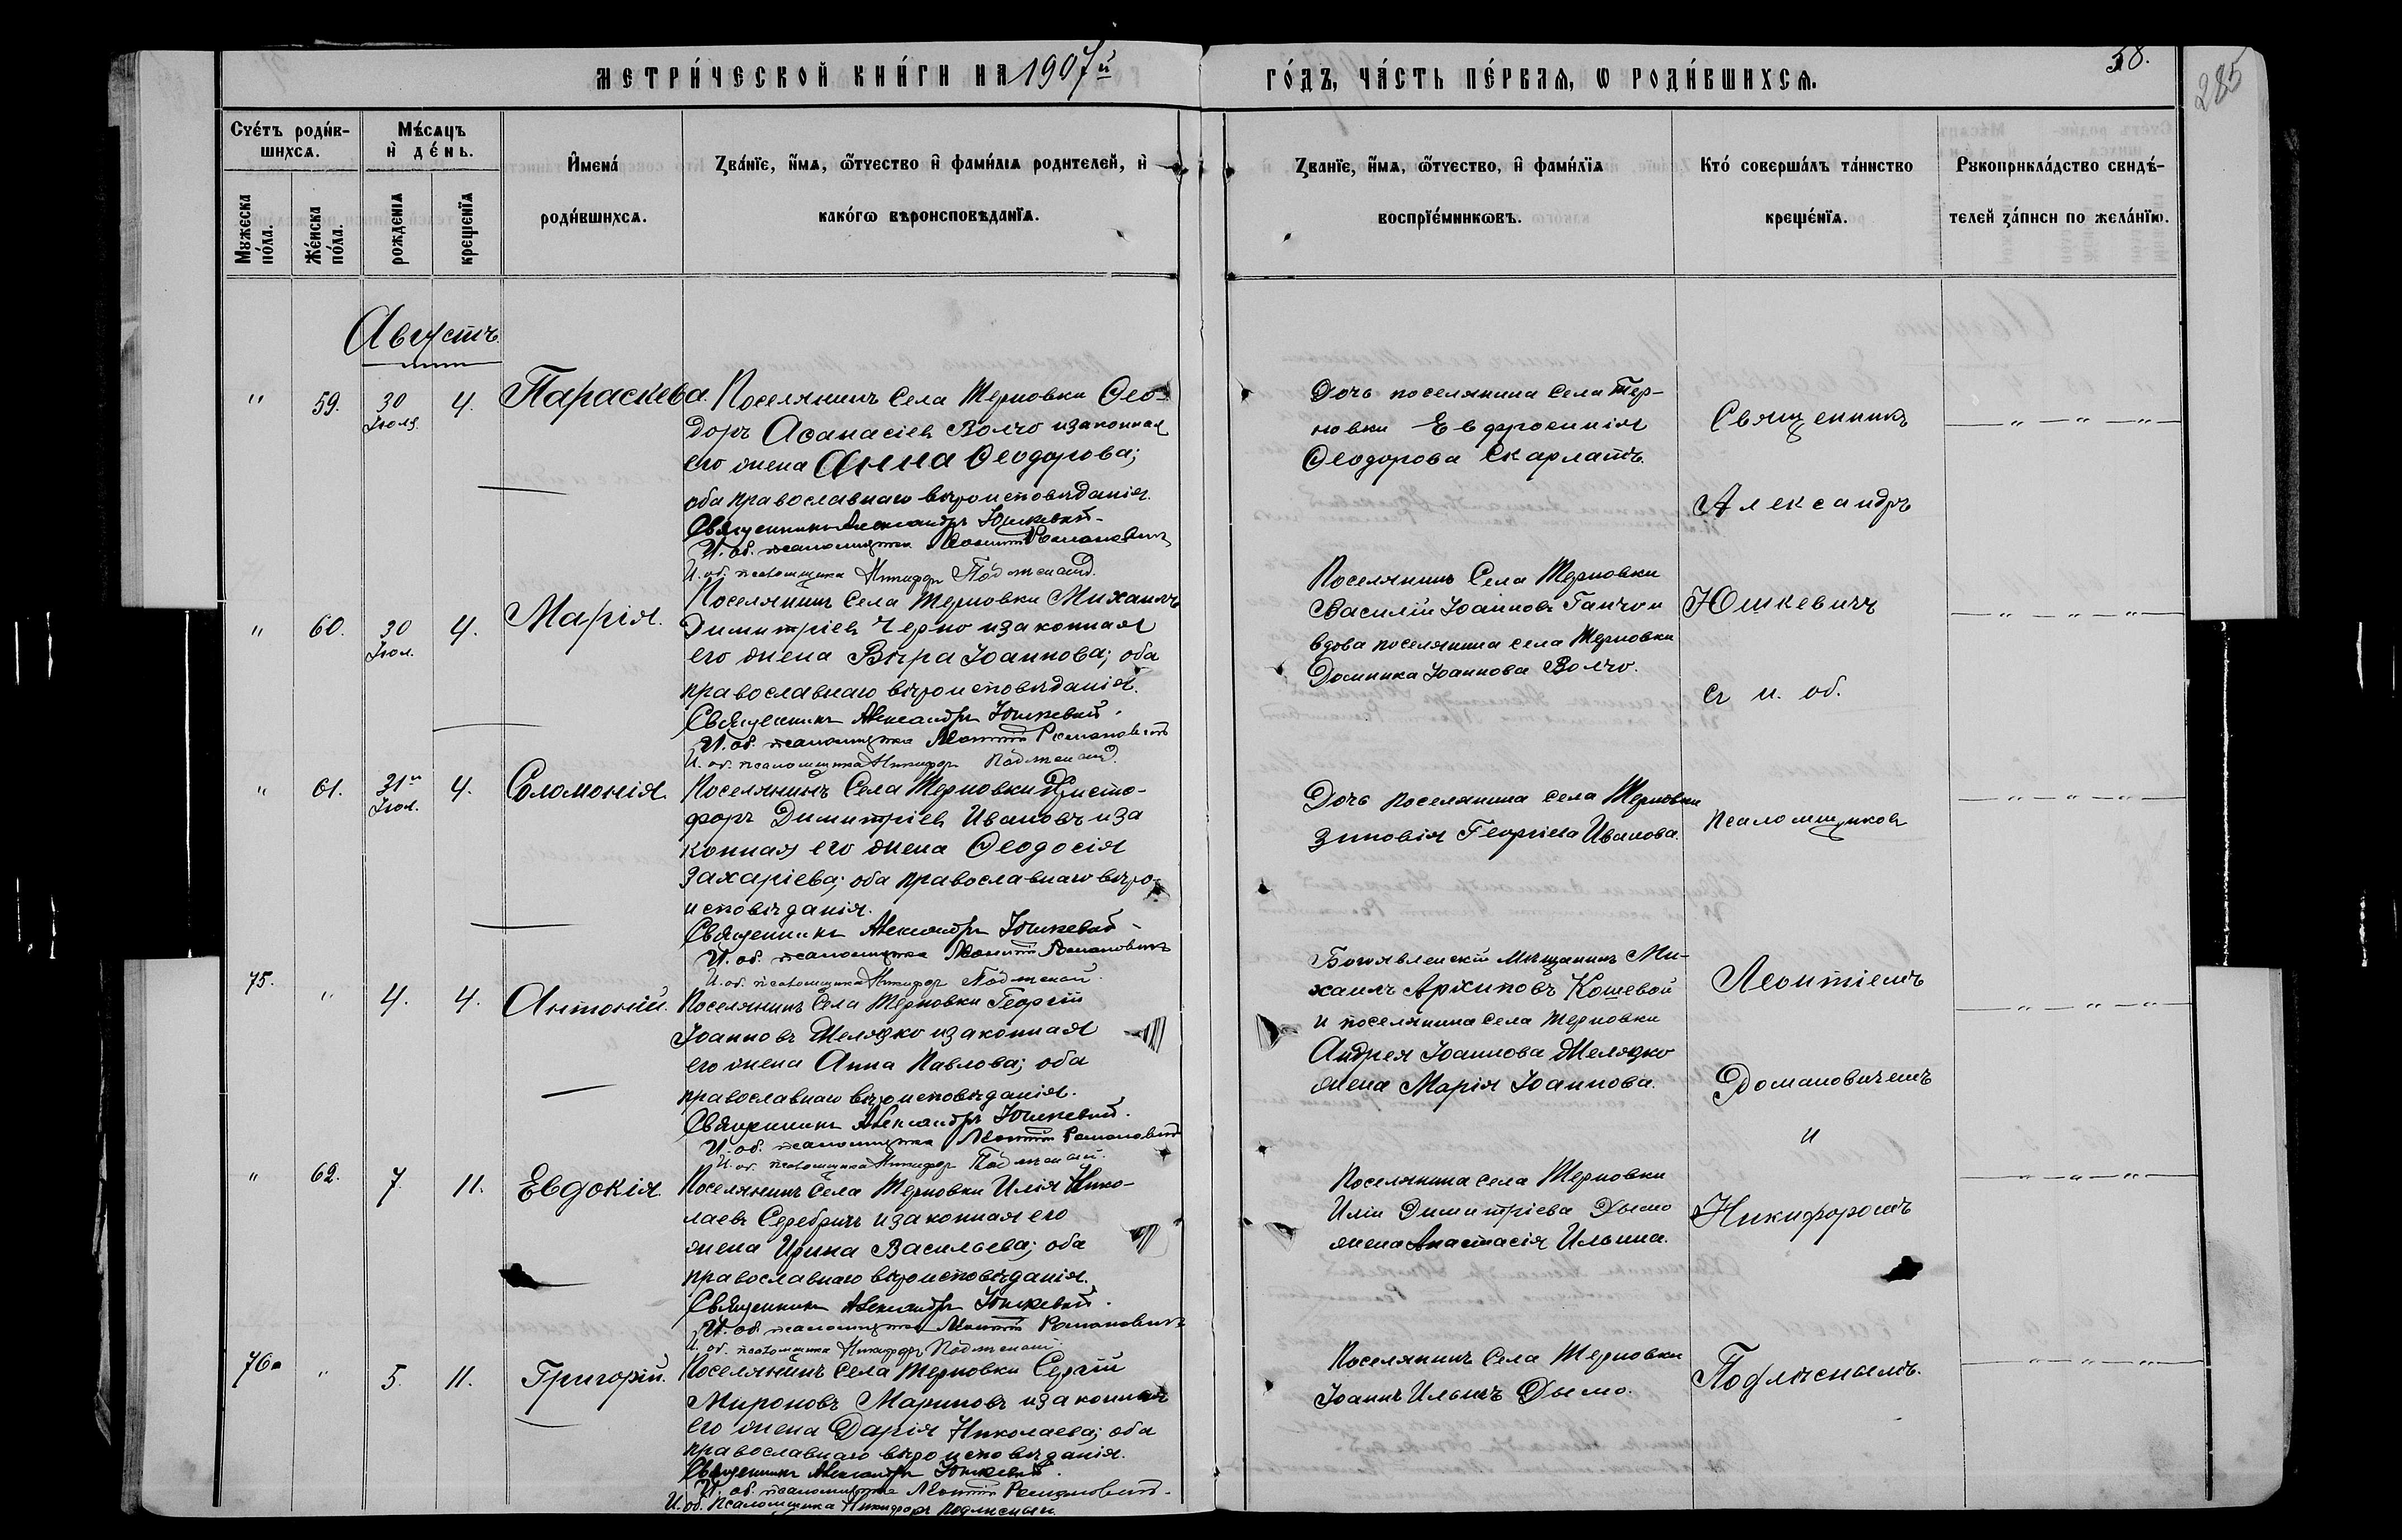 МЕТРИ́ЧЕСКОЙ КНИ́ГИ НА 1907й
ГО́ДЪ, ЧА́СТЬ ПЕ́РВАѦ, Ѡ РОДИ́ВШИХСѦ.
58.
285
Счéтъ роди́вшихсѧ.
Мѣ́сѧцъ и҆ де́нь.
Мꙋжеска по́ла.
Же́нска по́ла.
рожденїѧ
крещенїѧ
И҆мена́
роди́вшихсѧ.
Ꙁва́нїе, и҆́мѧ, ѻ҆́тчество и҆ фами́лїѧ родителей, и҆
како́гѡ вѣроисповѣданїѧ.
Ꙁванїе, и҆́мѧ, ѻ҆́тчество, и҆ фами́лїѧ
воспрїе́мникѡвъ.
Кто́ соверша́лъ та́инство
креще́нїѧ.
Рꙋкоприкла́дство свидѣ́-
телей ꙁа́писи по жела́нїю.
Августъ.
" 59. 30 Іюля. 4. Параскева.
Поселянинъ села Терновки Ѳео-
доръ Аѳанасіевъ Волчо и законная
его жена Анна Ѳеодорова;
оба православнаго вѣроисповѣданія.
Священникъ Александръ Юшкевичъ
И. об. псаломщика Леонтій Романовичъ
И. об. псаломщика Никифоръ Подлѣсный.
Дочь поселянина села Тер-
новки Евфросинія
Ѳеодорова Скарлатъ.
" 60. 30 Іюл. 4. Марія.
Поселянинъ села Терновки Михаилъ
Димитріевъ Черно и законная
его жена Вѣра Іоаннова; оба
православнаго вѣроисповѣданія.
Священникъ Александръ Юшкевичъ.
И. об. псаломщика Леонтій Романовичъ
И. об. псаломщика Никифоръ Подлѣсный.
Поселянинъ села Терновки
Василій Іоанновъ Ганчои
вдова поселянина села Терновки
Домника Іоаннова Волчо.
" 61. 31й Іюл. 4. Соломонія.
Поселянинъ села Терновки Христо-
форъ Димитріевъ Ивановъ и за
конная его жена Ѳеодосія
Захаріева; оба православнаго вѣро-
исповѣданія.
Священникъ Александръ Юшкевичъ
И. об. псаломщика Леонтій Романовичъ
И. об. псаломщика Никифоръ Подлѣсный.
Дочь поселянина села Терновки
Зиновія Георгіева Иванова.
75. " 4. 4. Антоній.
Поселянинъ села Терновки Георгій
Іоанновъ Желязко и законная
его жена Анна Павлова; оба
православнаго вѣроисповѣданія.
Священникъ Александръ Юшкевичъ.
И. об. псаломщика Леонтій Романовичъ
И. об. псаломщика Никифоръ Подлѣсный.
Богоявленскій мѣщанинъ Ми-
хаилъ Архиповъ Кошевой
и поселянина села Терновки
Андрея Іоаннова Желязко
жена Марія Іоаннова.
" 62. 7. 11. Евдокія.
Поселянинъ села Терновки Илія Нико-
лаевъ Серебричъ и законная его
жена Ирина Васильева; оба
православнаго вѣроисповѣданія.
Священникъ Александръ Юшкевичъ.
И. об. псаломщика Леонтій Романовичъ
И. об. псаломщика Никифоръ Подлѣсный
Поселянина села Терновки
Иліи Димитріева Дымо
жена Анастасія Ильина.
76. " 5. 11. Григорій.
Поселянинъ села Терновки Сергій
Мироновъ Мариновъ и законная
его жена Дарія Николаева; оба
православнаго вѣроисповѣданія.
Священникъ Александръ Юшкевичъ.
И. об. псаломщика Леонтій Романовичъ.
И. об. псаломщика Никифоръ Подлѣсный.
Поселянинъ села Терновки
Іоаннъ Ильинъ Дымо.
Священникъ
Александръ
Юшкевичъ
съ и. об.
псаломщиковъ
Леонтіемъ
Романовичемъ
и
Никифоромъ
Подлѣснымъ.